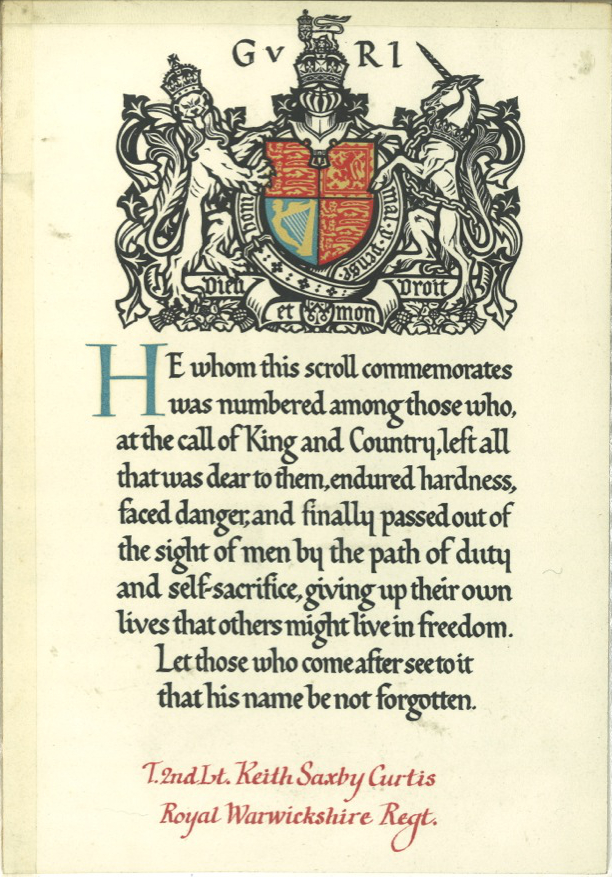 GV RI
Honi soit qui mal y pense
Dieu et mon Droit
HE whom this scroll commemorates
was numbered among those who,
at the call of King and Country, left all
that was dear to them, endured hardness,
faced danger, and finally passed out of
the sight of men by the path of duty
and self-sacrifice, giving up their own
lives that others might live in freedom.
Let those who come after see to it
that his name be not forgotten.
T. 2nd Lt. Keith Saxby Curtis
Royal Warwickshire Regt.